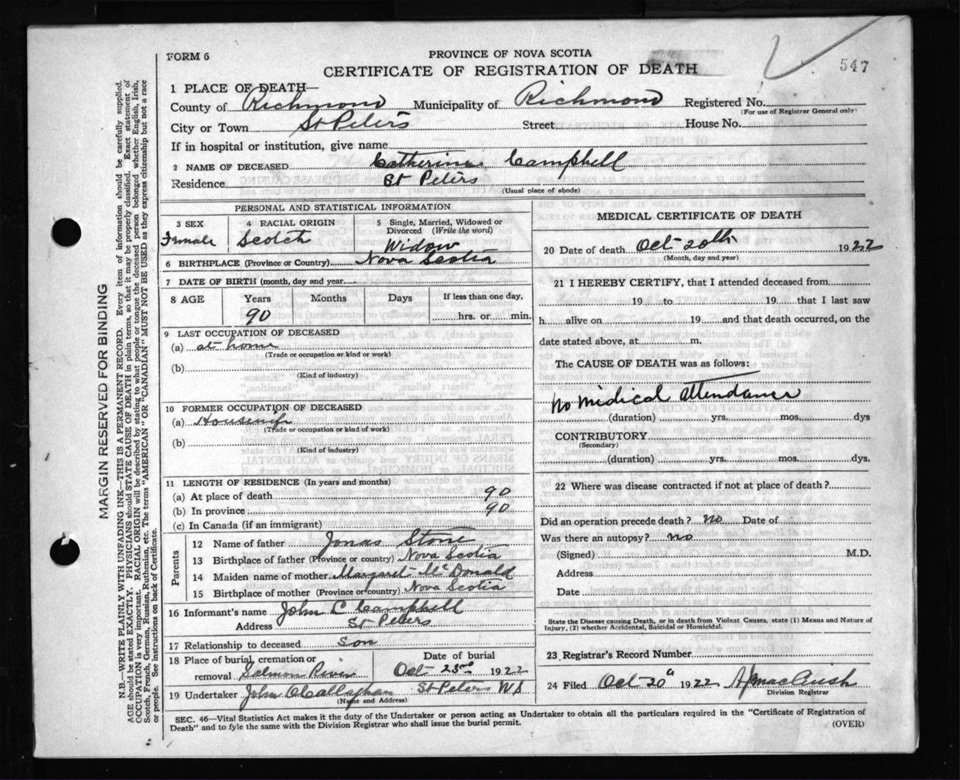 FORM 6
PROVINCE OF NOVA SCOTIA
CERTIFICATE OF REGISTRATION OF DEATH
547
1 PLACE OF DEATH—
County of Richmond Municipality of Richmond Registered No.
(For use of Registrar General only)
City or Town St Peters Street House No.
If in hospital or institution, give name
2 NAME OF DECEASED Catherine Campbell
Residence St Peters
(Usual place of abode)
PERSONAL AND STATISTICAL INFORMATION
3 SEX Female
4 RACIAL ORIGIN Scotch
5 Single, Married, Widowed or Divorced (Write the word) Widow
6 BIRTHPLACE (Province or Country) Nova Scotia
7 DATE OF BIRTH (month, day and year)
8 AGE Years Months Days If less than one day,
90 hrs. or min.
9 LAST OCCUPATION OF DECEASED
(a) at home
(Trade or occupation or kind of work)
(b)
(Kind of industry)
10 FORMER OCCUPATION OF DECEASED
(a) Housewife
(Trade or occupation or kind of work)
(b)
(Kind of industry)
11 LENGTH OF RESIDENCE (In years and months)
(a) At place of death 90
(b) In province 90
(c) In Canada (if an immigrant)
Parents
12 Name of father Jonas Stone
13 Birthplace of father (Province or country) Nova Scotia
14 Maiden name of mother Margaret McDonald
15 Birthplace of mother (Province or country) Nova Scotia
16 Informant's name John C Campbell
Address St Peters
17 Relationship to deceased Son
18 Place of burial, cremation or removal Salmon River
Date of burial Oct 23rd 1922
19 Undertaker John O'Callaghan St Peters N S
(Name and Address)
MEDICAL CERTIFICATE OF DEATH
20 Date of death Oct 20th 1922
(Month, day and year)
21 I HEREBY CERTIFY, that I attended deceased from
19 to 19 that I last saw
h alive on 19 and that death occurred, on
date stated above, at m.
The CAUSE OF DEATH was as follows:
No medical attendance
(duration) yrs. mos. dys
CONTRIBUTORY
(Secondary)
(duration) yrs. mos. dys.
22 Where was disease contracted if not at place of death?
Did an operation precede death? no Date of
Was there an autopsy? no
(Signed) M.D.
Address
Date
State the Disease causing Death, or in death from Violent Causes, state (1) Means and Nature of
Injury, (2) whether Accidental, Suicidal or Homicidal.
23 Registrar's Record Number
24 Filed Oct 20 1922
Division Registrar
SEC. 46—Vital Statistics Act makes it the duty of the Undertaker or person acting as Undertaker to obtain all the particulars required in the "Certificate of Registration of
Death" and to fyle the same with the Division Registrar who shall issue the burial permit.
(OVER)
MARGIN RESERVED FOR BINDING
N.B.—WRITE PLAINLY WITH UNFADING INK—THIS IS A PERMANENT RECORD. Every item of information should be carefully supplied.
AGE should be stated EXACTLY. PHYSICIANS should STATE CAUSE OF DEATH in plain terms, so that it may be properly classified. Exact statement of
OCCUPATION is very important. RACIAL ORIGIN will be described by stating to what people or tongue the deceased person belonged whether English, Irish,
Scotch, French, German, Russian, Ruthenian, etc. The terms "AMERICAN" OR "CANADIAN" MUST NOT BE USED as they express citizenship but not a race
or people. See instructions on back of Certificate.